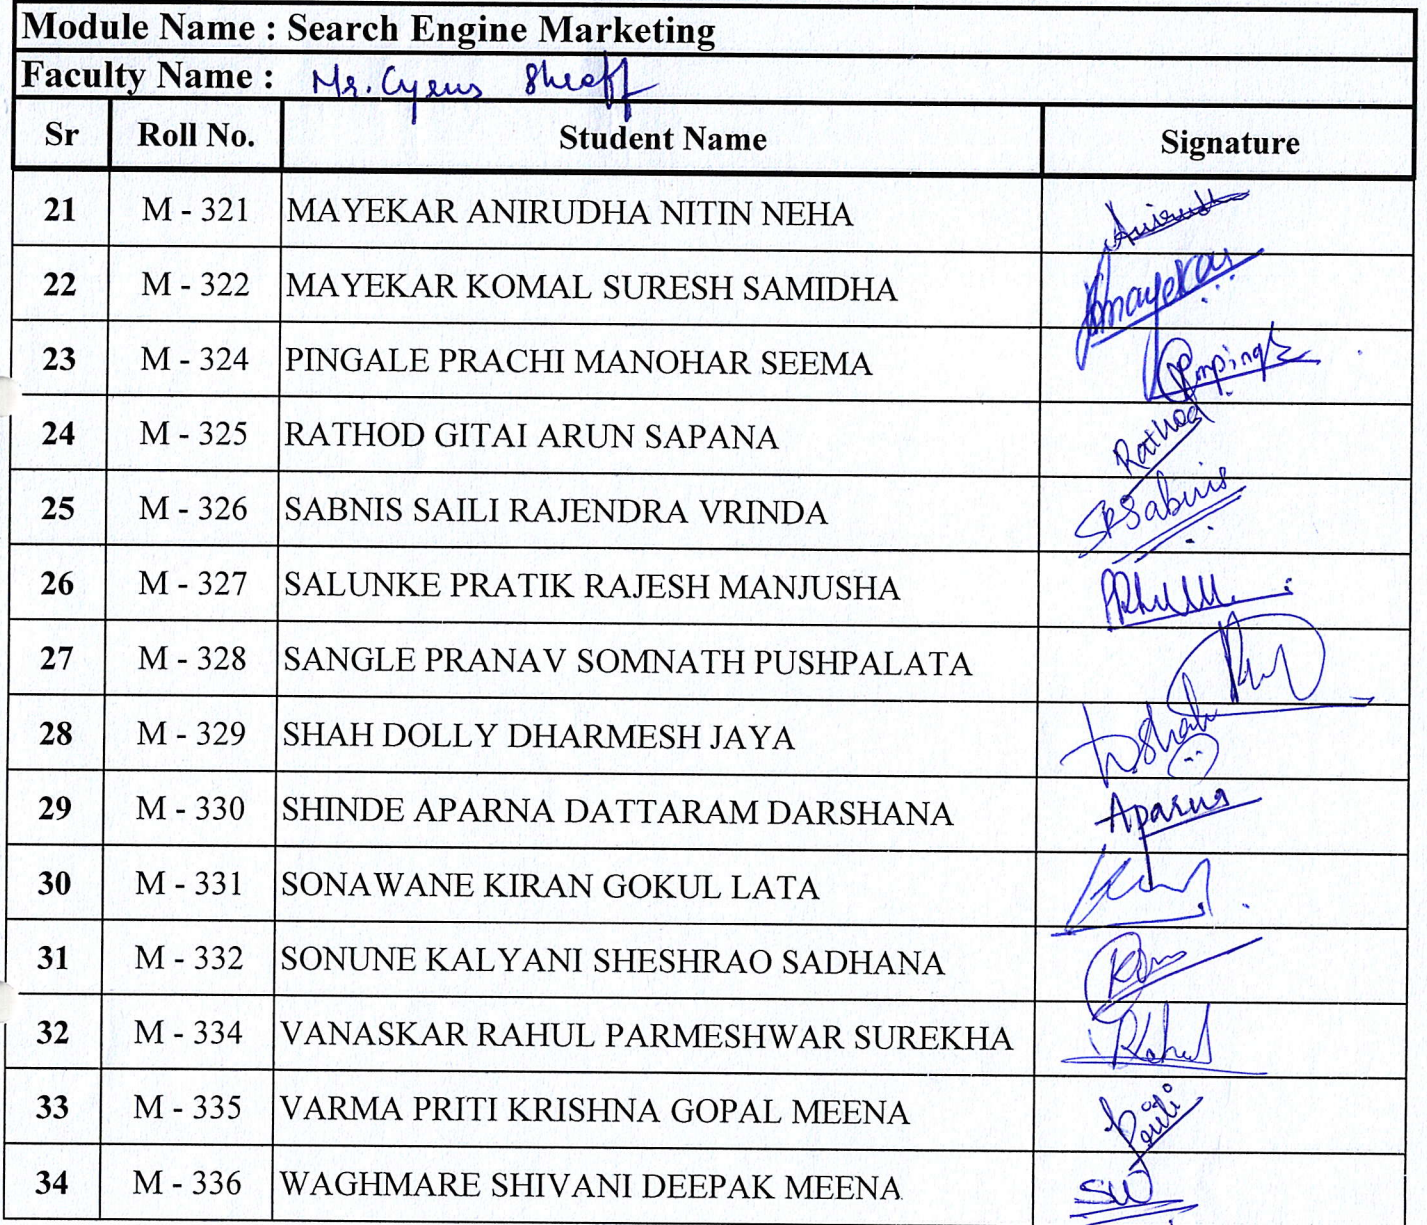 Module Name : Search Engine Marketing
Faculty Name : Mr. Cyrus Shroff
Sr Roll No. Student Name Signature
21 M - 321 MAYEKAR ANIRUDHA NITIN NEHA Anirudh
22 M - 322 MAYEKAR KOMAL SURESH SAMIDHA mayekar
23 M - 324 PINGALE PRACHI MANOHAR SEEMA
24 M - 325 RATHOD GITAI ARUN SAPANA Rathod
25 M - 326 SABNIS SAILI RAJENDRA VRINDA SRSabnis
26 M - 327 SALUNKE PRATIK RAJESH MANJUSHA
27 M - 328 SANGLE PRANAV SOMNATH PUSHPALATA
28 M - 329 SHAH DOLLY DHARMESH JAYA Dshah
29 M - 330 SHINDE APARNA DATTARAM DARSHANA Aparna
30 M - 331 SONAWANE KIRAN GOKUL LATA
31 M - 332 SONUNE KALYANI SHESHRAO SADHANA
32 M - 334 VANASKAR RAHUL PARMESHWAR SUREKHA Rahul
33 M - 335 VARMA PRITI KRISHNA GOPAL MEENA Priti
34 M - 336 WAGHMARE SHIVANI DEEPAK MEENA SW